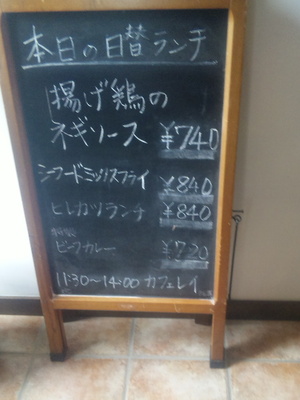 本日の日替ランチ
揚げ鶏の
ネギソース ¥740
シーフードミックスフライ ¥840
ヒレカツランチ ¥840
特製
ビーフカレー ¥720
11:30～14:00 カフェレイ